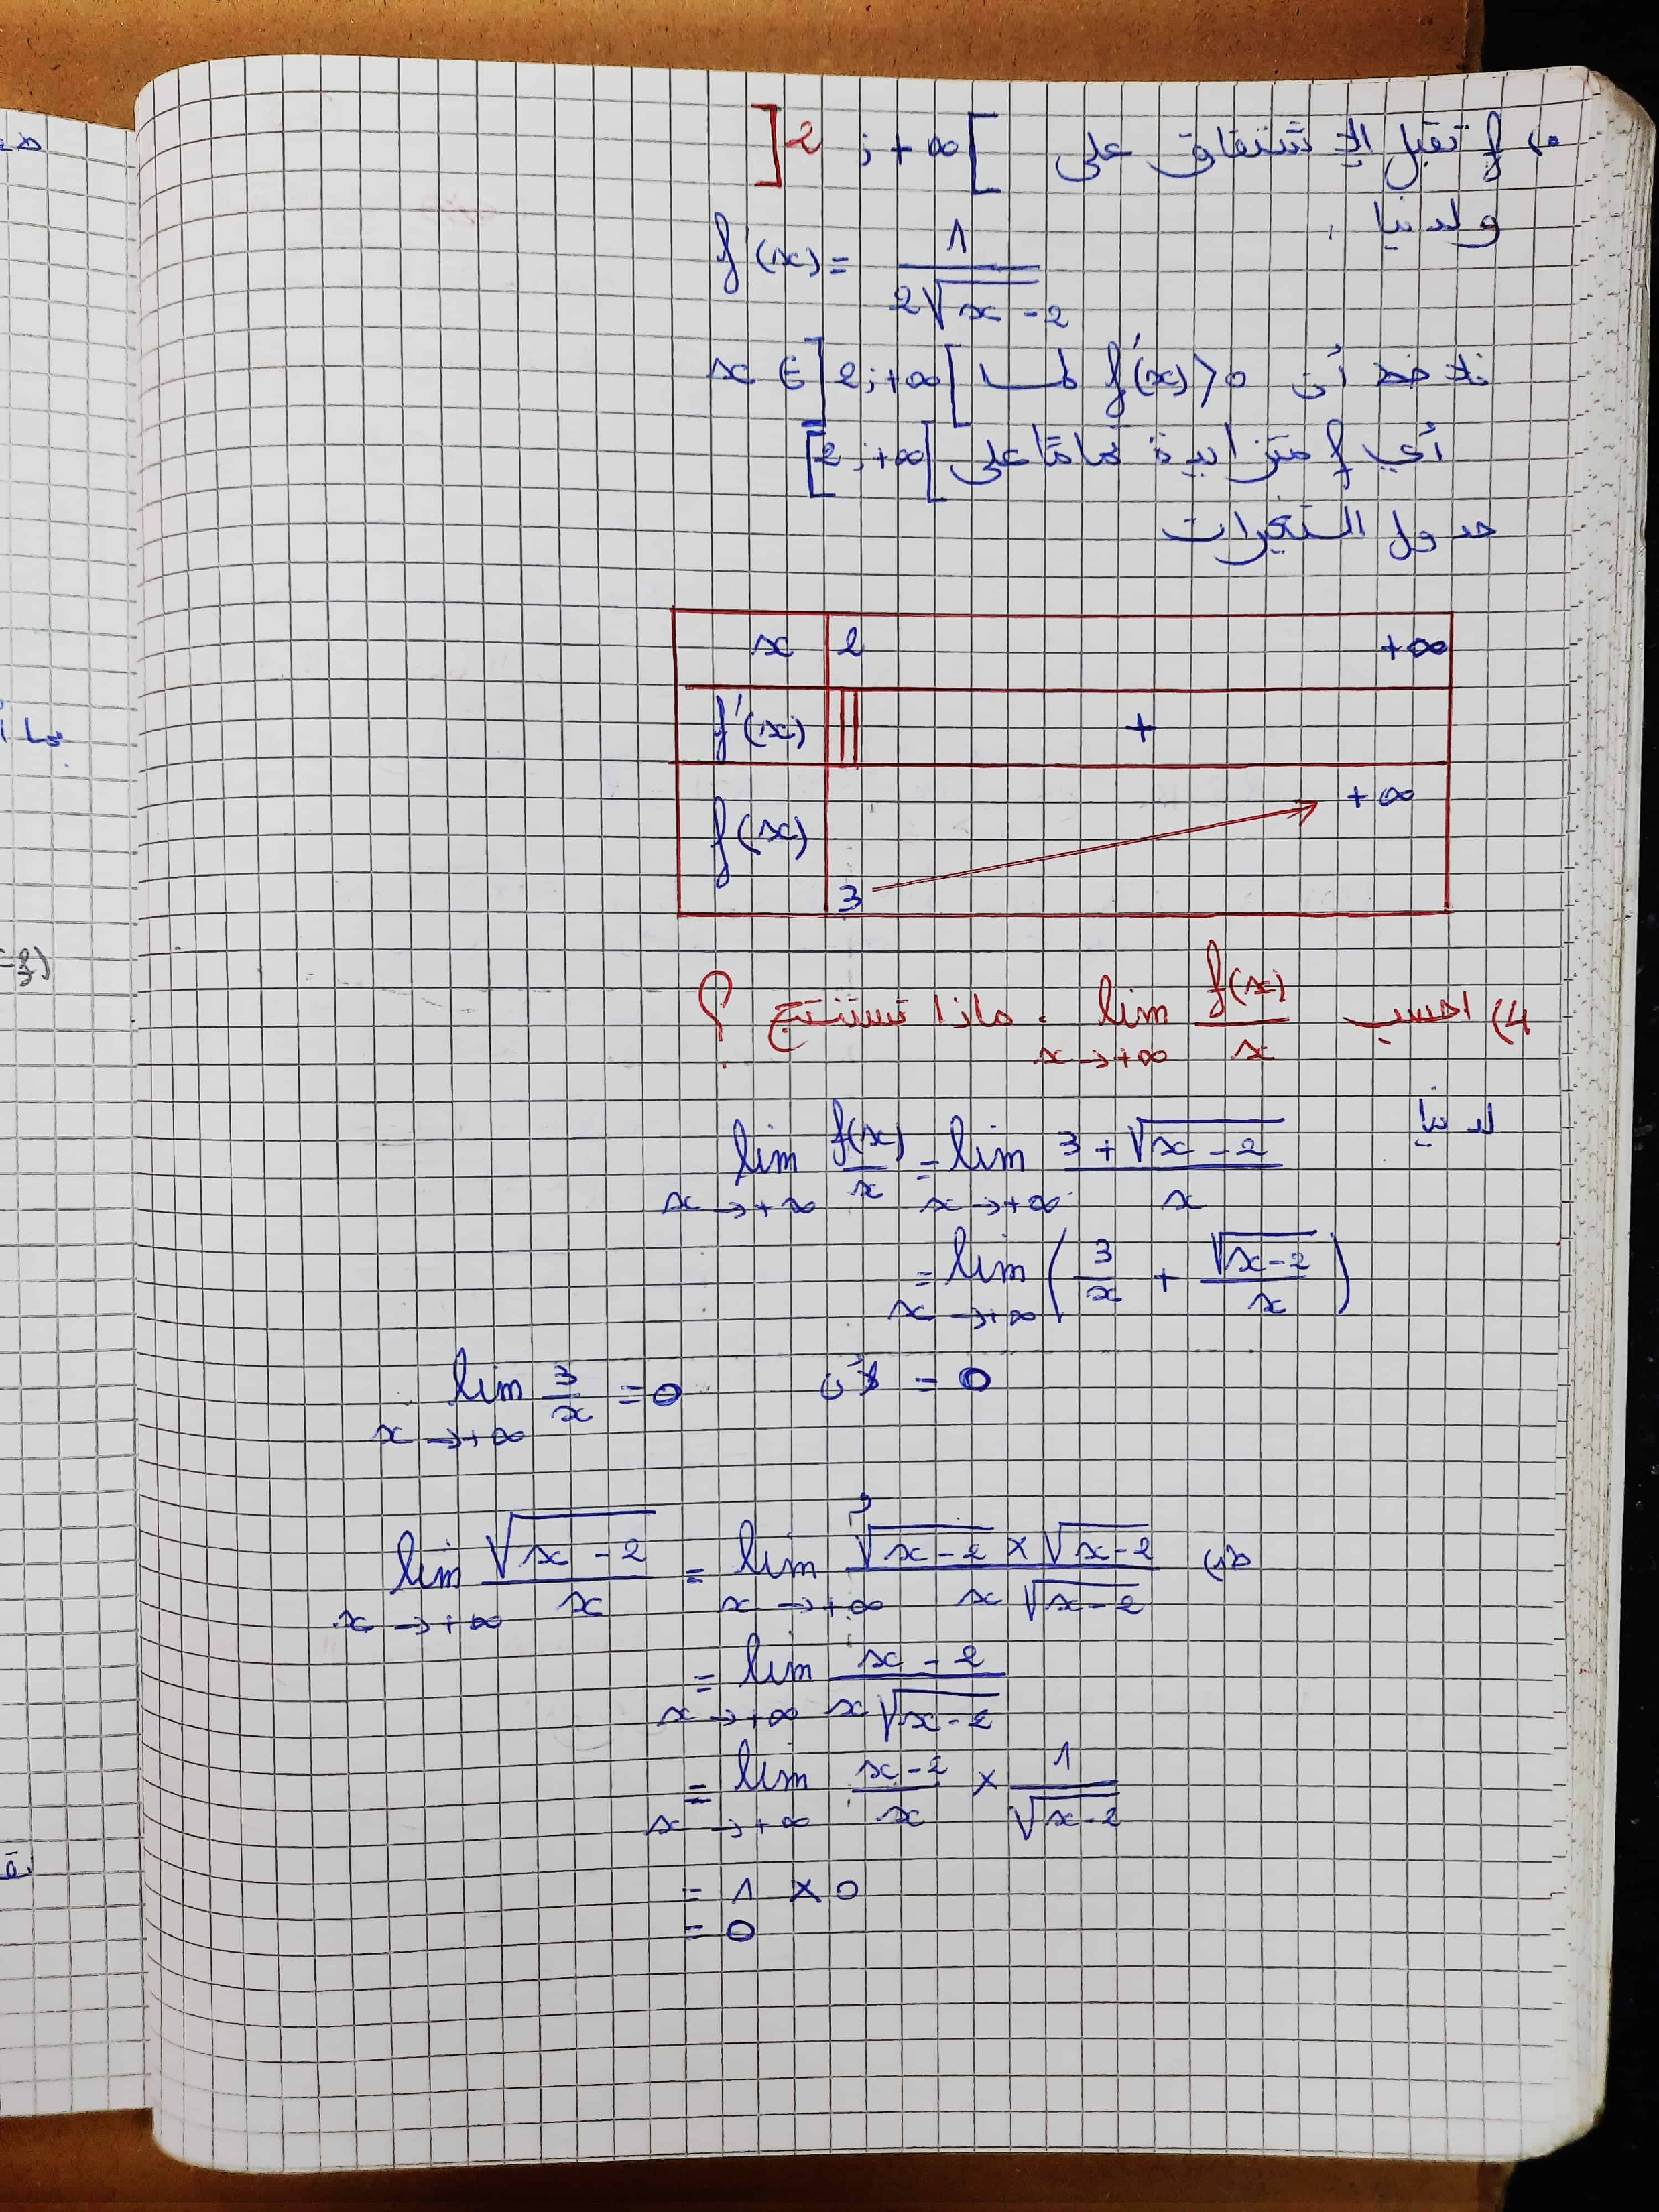 f تقبل الإشتقاق على ]2 ; +∞[
ولدينا
f'(x) = 1 / (2√x-2)
نلاحظ أن f'(x)>0 لما x ∈ ]2;+∞[
أي f متزايدة تمامًا على [2;+∞[
جدول التغيرات
x 2 +∞
f'(x) || +
f(x) 3 +∞
4) احسب lim x→+∞ f(x)/x . ماذا تستنتج ؟
لدينا
lim x→+∞ f(x)/x = lim x→+∞ (3+√(x-2))/x
= lim x→+∞ (3/x + √(x-2)/x)
= 0 لأن lim x→+∞ 3/x = 0
و
lim x→+∞ √(x-2)/x = lim x→+∞ (√(x-2) × √(x-2))/(x√(x-2))
= lim x→+∞ (x-2)/(x√(x-2))
= lim x→+∞ (x-2)/x × 1/√(x-2)
= 1 × 0
= 0